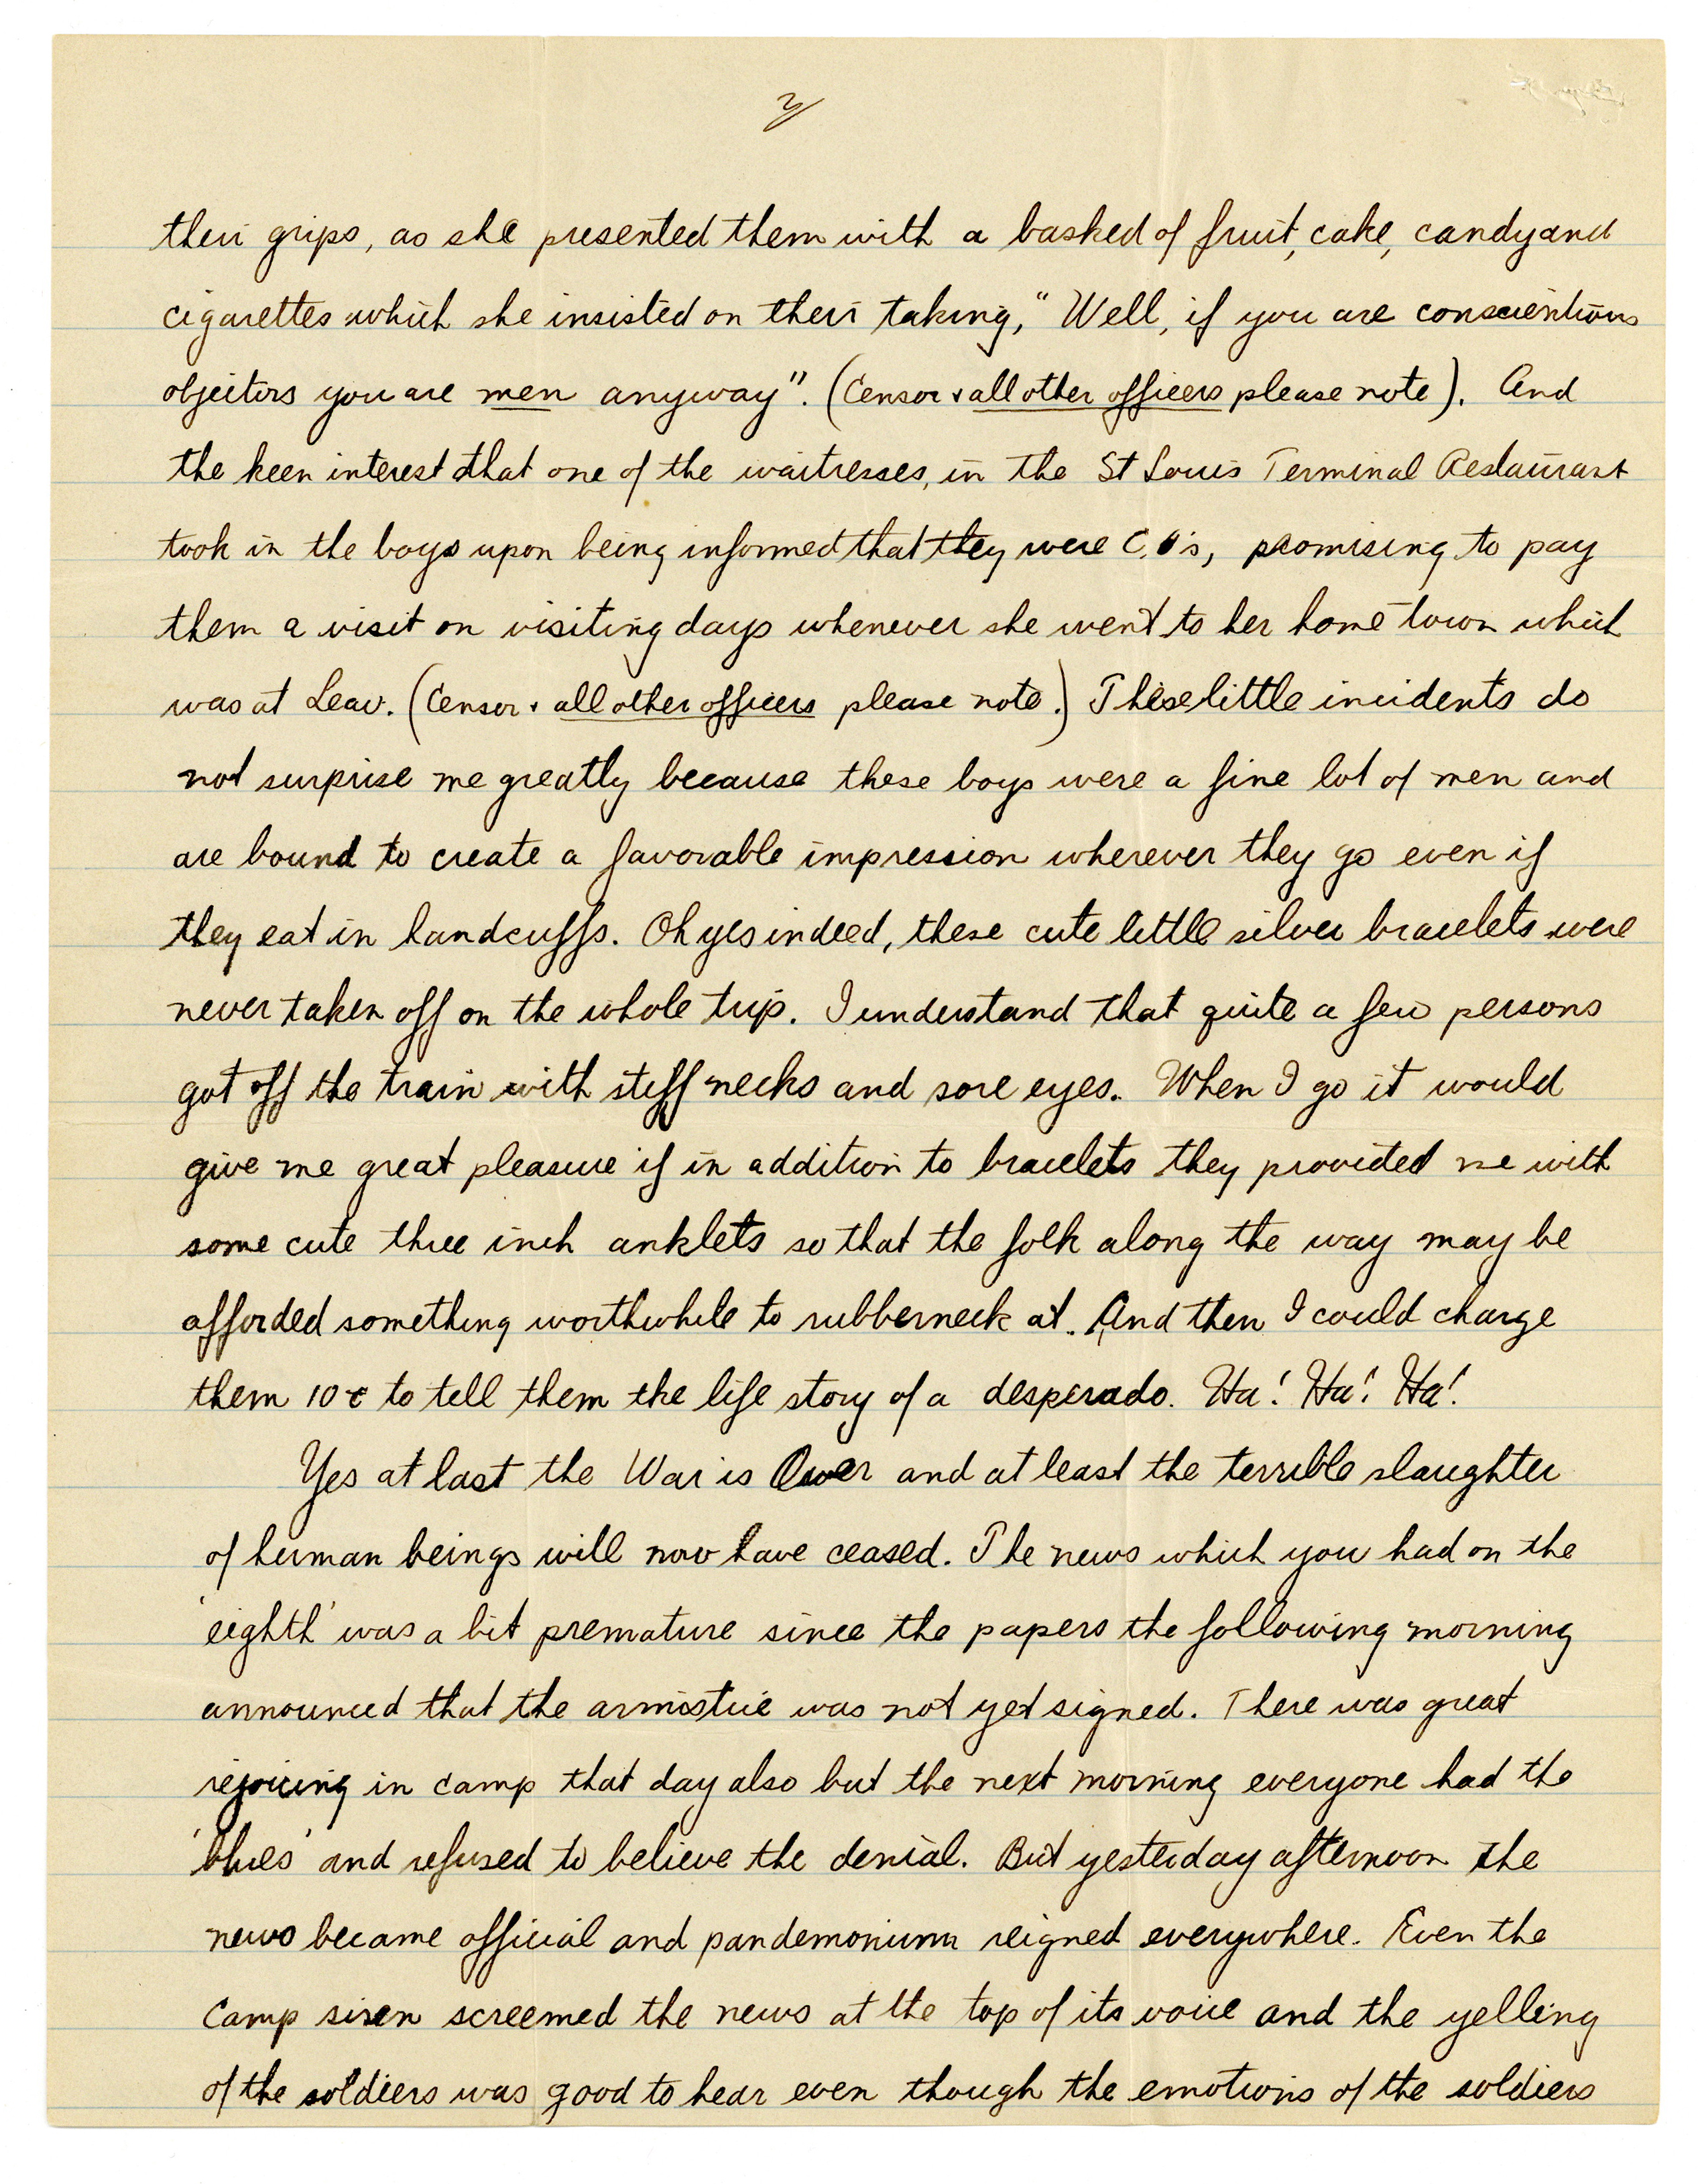 3/
their grips, as she presented them with a basked of fruit, cake, candy and
cigarettes which she insisted on their taking, "Well, if you are conscientious
objectors you are men anyway". (Censor & all other officers please note). And
the keen interest that one of the waitresses, in the St Louis Terminal Restaurant
took in the boys upon being informed that they were C.O's, promising to pay
them a visit on visiting days whenever she went to her home town which
was at Leav. (Censor & all other officers please note.) These little incidents do
not surprise me greatly because these boys were a fine lot of men and
are bound to create a favorable impression wherever they go even if
they eat in handcuffs. Oh yes indeed, these cute little silver bracelets were
never taken off on the whole trip. I understand that quite a few persons
got off the train with stiff necks and sore eyes. When I go it would
give me great pleasure if in addition to bracelets they provided me with
some cute three inch anklets so that the folk along the way may be
afforded something worthwhile to rubberneck at. And then I could charge
them 10¢ to tell them the life story of a desperado. Ha! Ha! Ha!
Yes at last the War is Over and at least the terrible slaughter
of human beings will now have ceased. The news which you had on the
'eighth' was a bit premature since the papers the following morning
announced that the armistice was not yet signed. There was great
rejoicing in camp that day also but the next morning everyone had the
'blues' and refused to believe the denial. But yesterday afternoon the
news became official and pandemonium reigned everywhere. Even the
Camp siren screemed the news at the top of its voice and the yelling
of the soldiers was good to hear even though the emotions of the soldiers